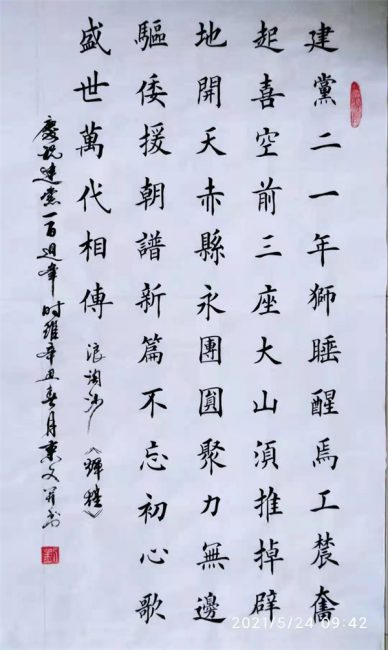 建黨二一年獅睡醒焉工農奮
起喜空前三座大山須推掉辟
地開天赤縣永團圓聚力無邊
驅倭援朝譜新篇不忘初心歌
盛世萬代相傳
浪淘沙《輝煌》
慶祝建黨一百週年時維辛丑春月東文
2021/5/24 09:42